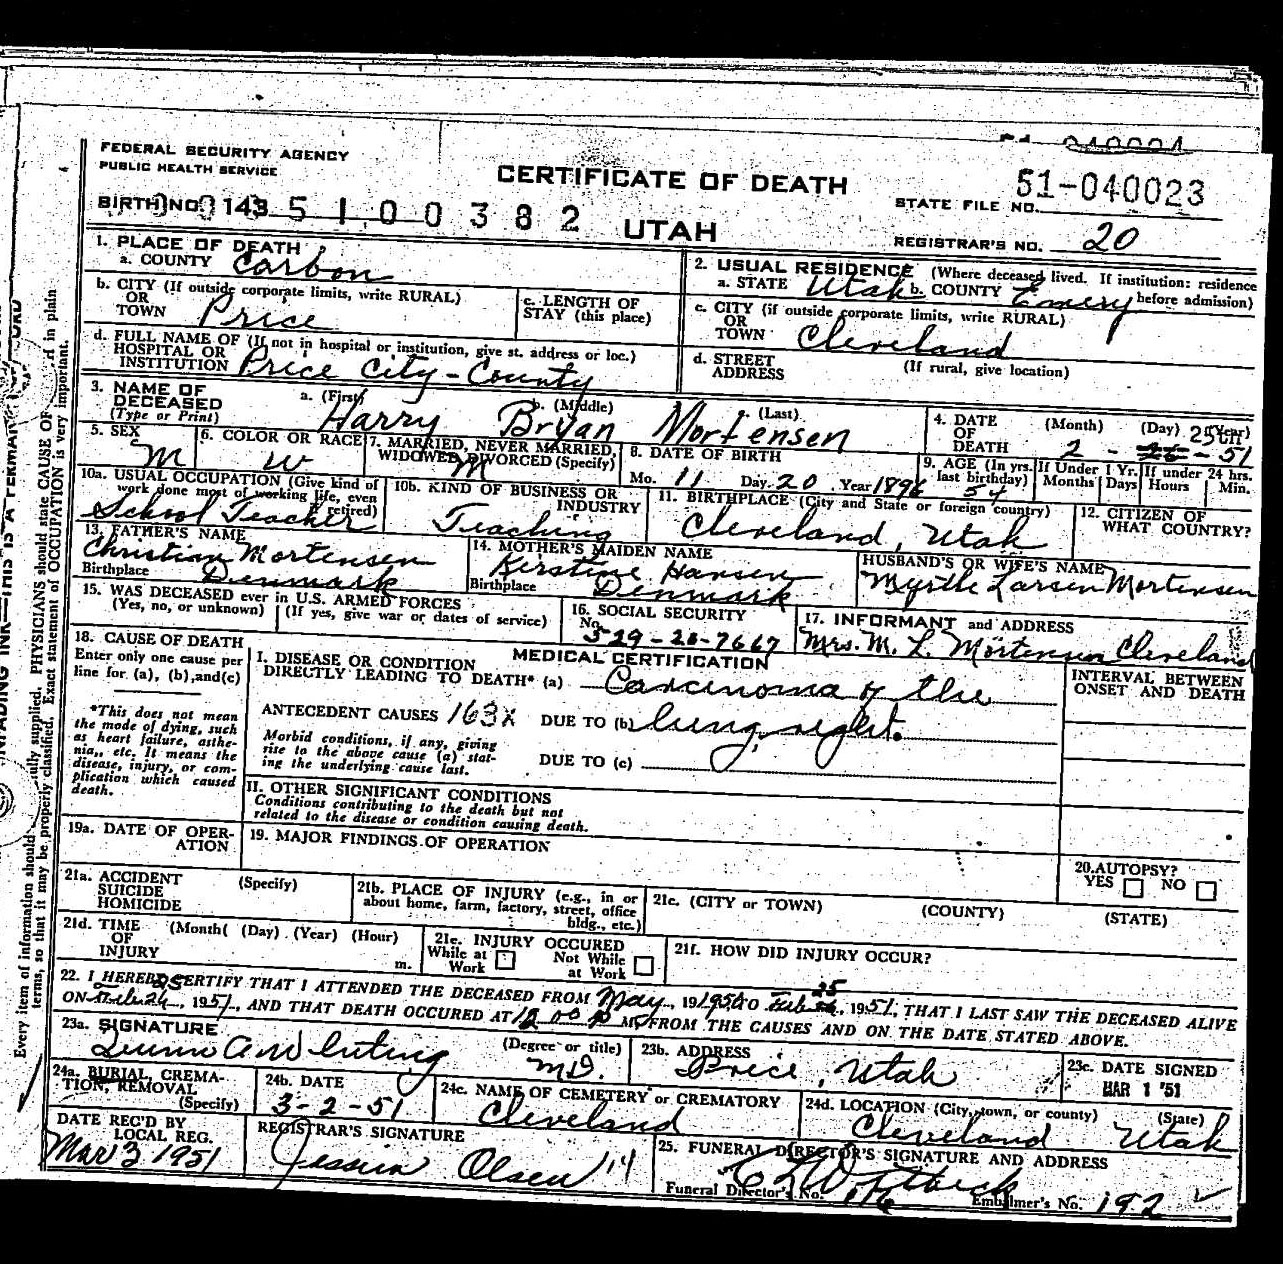 51-040024
FEDERAL SECURITY AGENCY
PUBLIC HEALTH SERVICE
CERTIFICATE OF DEATH
51-040023
STATE FILE NO.
BIRTH NO. 143 5 1 0 0 3 8 2
UTAH
REGISTRAR'S NO. 20
1. PLACE OF DEATH
a. COUNTY Carbon
b. CITY (If outside corporate limits, write RURAL)
OR
TOWN Price
c. LENGTH OF
STAY (this place)
d. FULL NAME OF (If not in hospital or institution, give st. address or loc.)
HOSPITAL OR
INSTITUTION Price City-County
2. USUAL RESIDENCE (Where deceased lived. If institution: residence
a. STATE Utah b. COUNTY Emery before admission)
c. CITY (if outside corporate limits, write RURAL)
OR
TOWN Cleveland
d. STREET (If rural, give location)
ADDRESS
3. NAME OF
DECEASED
(Type or Print)
a. (First) b. (Middle) c. (Last)
Harry Bryan Mortensen
4. DATE
OF
DEATH
(Month) (Day) (Year)
25th
2 - 26 - 51
5. SEX
M
6. COLOR OR RACE
W
7. MARRIED, NEVER MARRIED,
WIDOWED, DIVORCED (Specify)
M
8. DATE OF BIRTH
Mo. 11 Day. 20 . Year 1896
9. AGE (In yrs.
last birthday)
54
If Under 1 Yr.
Months Days
If under 24 hrs.
Hours Min.
10a. USUAL OCCUPATION (Give kind of
work done most of working life, even
if retired)
School Teacher
10b. KIND OF BUSINESS OR
INDUSTRY
Teaching
11. BIRTHPLACE (City and State or foreign country)
Cleveland, Utah
12. CITIZEN OF
WHAT COUNTRY?
13. FATHER'S NAME
Christian Mortensen
Birthplace Denmark
14. MOTHER'S MAIDEN NAME
Kerstine Hansen
Birthplace Denmark
HUSBAND'S OR WIFE'S NAME
Myrtle Larsen Mortensen
15. WAS DECEASED ever in U.S. ARMED FORCES
(Yes, no, or unknown) (If yes, give war or dates of service)
16. SOCIAL SECURITY
No.
529-28-7667
17. INFORMANT and ADDRESS
Mrs. M. L. Mortensen Cleveland
18. CAUSE OF DEATH
Enter only one cause per
line for (a), (b), and (c)
*This does not mean
the mode of dying, such
as heart failure, asthe-
nia,, etc. It means the
disease, injury, or com-
plication which caused
death.
MEDICAL CERTIFICATION
I. DISEASE OR CONDITION
DIRECTLY LEADING TO DEATH* (a) Carcinoma of the
ANTECEDENT CAUSES 163X DUE TO (b) lung, right.
Morbid conditions, if any, giving
rise to the above cause (a) stat-
ing the underlying cause last.
DUE TO (c)
INTERVAL BETWEEN
ONSET AND DEATH
II. OTHER SIGNIFICANT CONDITIONS
Conditions contributing to the death but not
related to the disease or condition causing death.
19a. DATE OF OPER-
ATION
19. MAJOR FINDINGS OF OPERATION
20. AUTOPSY?
YES NO
21a. ACCIDENT
SUICIDE
HOMICIDE
(Specify)
21b. PLACE OF INJURY (e.g., in or
about home, farm, factory, street, office
bldg., etc.)
21c. (CITY or TOWN) (COUNTY) (STATE)
21d. TIME
OF
INJURY
(Month( (Day) (Year) (Hour)
m.
21e. INJURY OCCURED
While at
Work
Not While
at Work
21f. HOW DID INJURY OCCUR?
22. I HEREBY CERTIFY THAT I ATTENDED THE DECEASED FROM May, 19 1950 TO Feb 25, 1951, THAT I LAST SAW THE DECEASED ALIVE
ON 25 1951, AND THAT DEATH OCCURED AT 12 00 P M., FROM THE CAUSES AND ON THE DATE STATED ABOVE.
23a. SIGNATURE
(Degree or title)
MD.
23b. ADDRESS
Price, Utah
23c. DATE SIGNED
MAR 1 '51
24a. BURIAL, CREMA-
TION, REMOVAL
(Specify)
24b. DATE
3-2-51
24c. NAME OF CEMETERY or CREMATORY
Cleveland
24d. LOCATION (City, town, or county) (State)
Cleveland Utah
DATE REC'D BY
LOCAL REG.
Mar 3, 1951
REGISTRAR'S SIGNATURE
Jessie Olsen
25. FUNERAL DIRECTOR'S SIGNATURE AND ADDRESS
Funeral Director's No.
Embalmer's No. 192
Every item of information should fully supplied. PHYSICIANS should state CAUSE OF in plain
terms, so that it may be properly classified. Exact statement of OCCUPATION is very important.
INK—THIS IS A PERMA